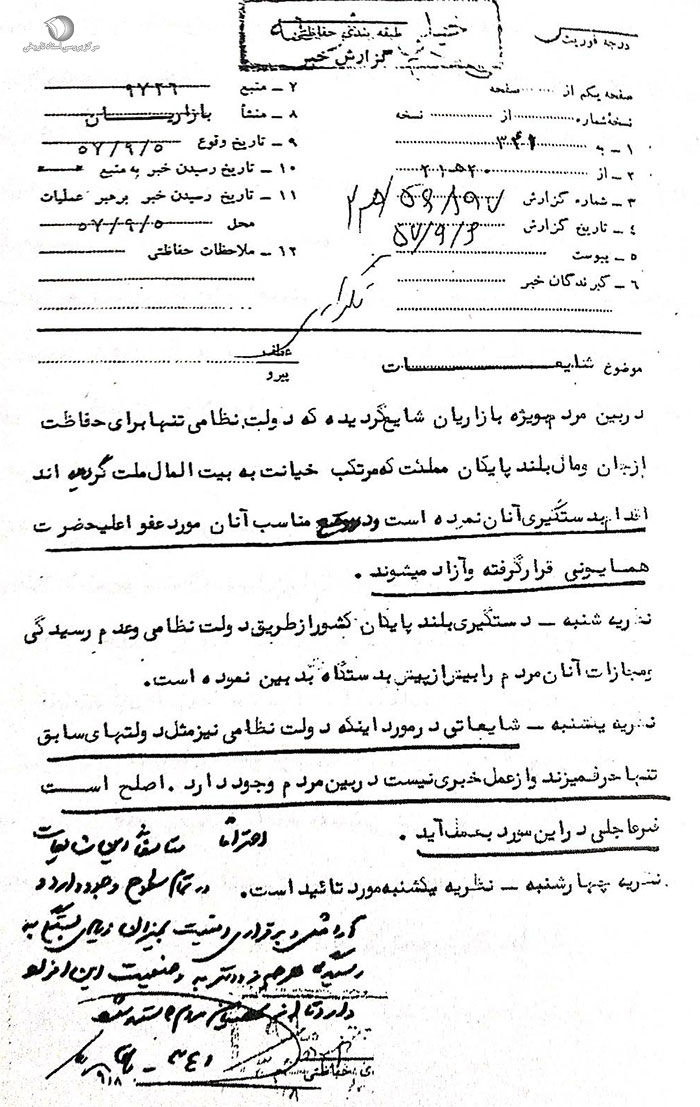 مرکز بررسی اسناد تاریخی
طبقه بندی حفاظتی
گزارش خبر
درجه فوریت
صفحه یکم از صفحه
نسخه شماره از نسخه
۱ ــ به ۳۴۱
۲ ــ از ۲۰ه۲۱
۳ ــ شماره گزارش
۴ ــ تاریخ گزارش ۵۷/۹/۶
۵ ــ پیوست
۶ ــ گیرندگان خبر
۷ ــ منبع ۹۷۲۶
۸ ــ منشأ بازاریان
۹ ــ تاریخ وقوع ۵۷/۹/۵
۱۰ ــ تاریخ رسیدن خبر به منبع
۱۱ ــ تاریخ رسیدن خبر برهبر عملیات
محل ۵۷/۹/۵
۱۲ ــ ملاحظات حفاظتی
موضوع شایعات
عطف
پیرو
دربین مردم بویژه بازاریان شایع گردیده که دولت نظامی تنها برای حفاظت
ازجان ومال بلند پایگان مملکت که مرتکب خیانت به بیت المال ملت گردیده اند
اقدام بدستگیری آنان نموده است ودر موقع مناسب آنان مورد عفو اعلیحضرت
همایونی قرارگرفته وآزاد میشوند .
نظریه شنبه ــ دستگیری بلند پایگان کشور ازطریق دولت نظامی وعدم رسیدگی
ومجازات آنان مردم را بیش ازپیش بدستگاه بد بین نموده است.
نظریه یکشنبه ــ شایعاتی درمورد اینکه دولت نظامی نیز مثل دولتهای سابق
تنها حرف میزند وازعمل خبری نیست دربین مردم وجود دارد . اصلح است
فکر عاجلی دراین مورد بعمل آید .
نظریه چهارشنبه ــ نظریه یکشنبه مورد تائید است.
احتراماً متاسفانه این شایعات
در تمام سطوح وجود دارد و
و برقراری امنیت بمیزان زیادی بستگی به
رسیدگی هرچه زودتر به وضعیت این افراد
دارد تا
۳۴۱
۹/۸